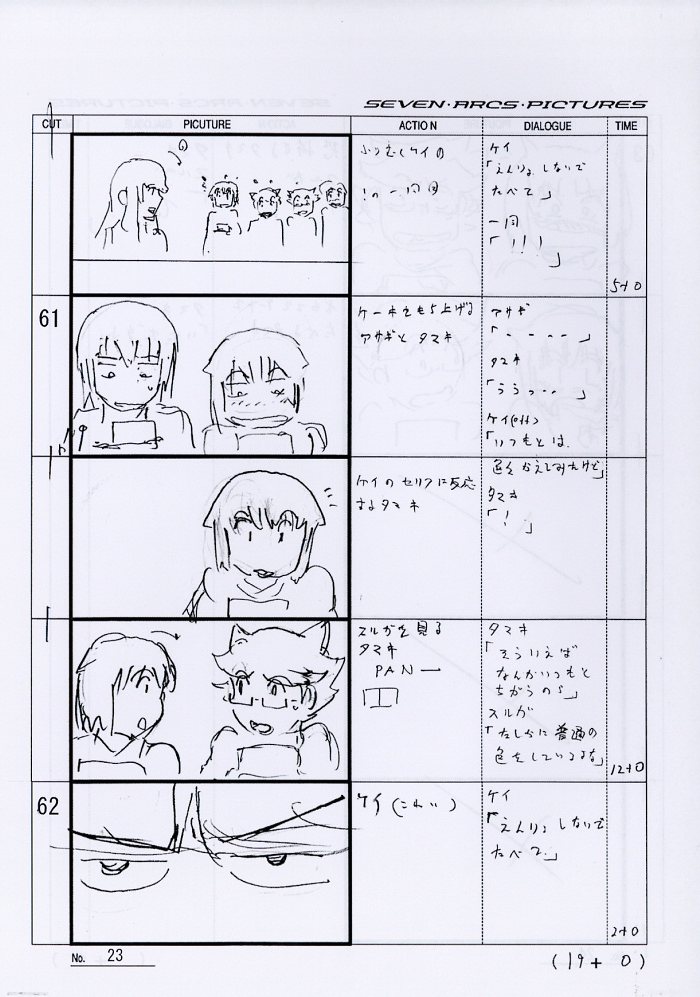 SEVEN・ARCS・PICTURES
CUT
PICUTURE
ACTION
DIALOGUE
TIME
ケイ
「えんりょしないで
たべて」
一同
「!!!
」
5+0
61
ケーキをもち上げる
アサギとタマキ
アサギ
「----」
タマキ
「ううっ・・・ 」
ケイ(off)
「いつもとは、
色々かえてみたけど」
ケイのセリフに反応
するタマキ
タマキ
「!
」
スルガを見る
タマキ
PAN
タマキ
「そういえば
なんかいつもと
ちがうの」
スルガ
「たしかに普通の
色をしているな」
12+0
62
ケイ(こわい)
ケイ
「えんりょしないで
たべて」
2+0
No. 23
(19+ 0)